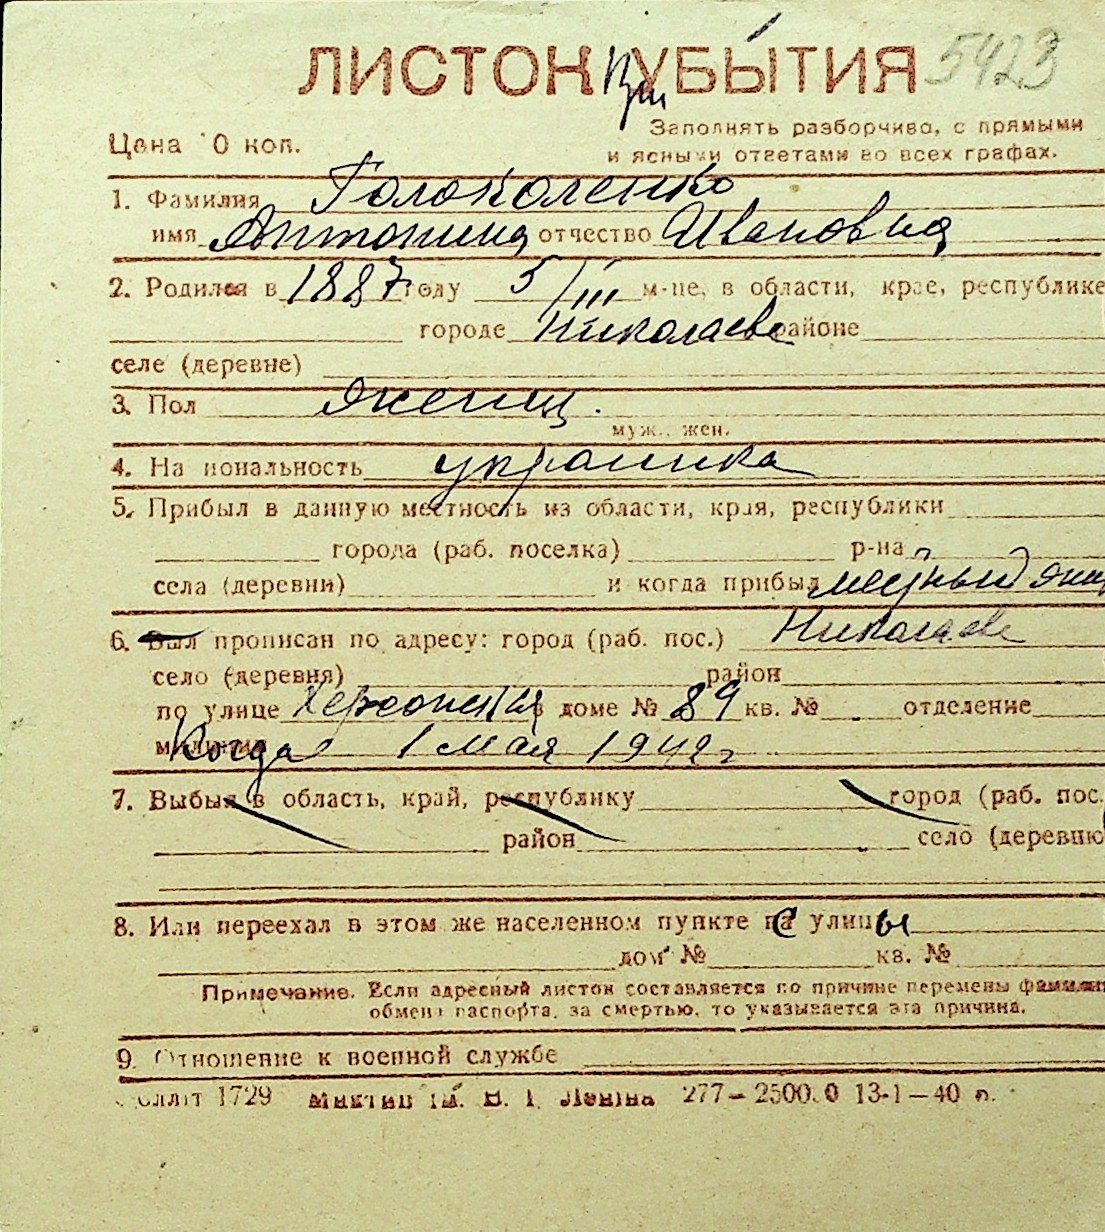 ЛИСТОК При УБЫТИЯ 5423
Цена 10 коп.
Заполнять разборчиво, с прямыми
и ясными ответами во всех графах.
1. Фамилия Голоколенко
имя Антонина отчество Ивановна
2. Родился в 1887 году 5/III м-це, в области, крае, республике
городе Николаеве районе
селе (деревне)
3. Пол женщ.
муж., жен.
4. Национальность украинка
5. Прибыл в данную местность из области, края, республики
города (раб. поселка) р-на
села (деревни) и когда прибыл местный жит
6. Был прописан по адресу: город (раб. пос.) Николаев
село (деревня) район
по улице Херсонская в доме № 89 кв. № отделение
Когда 1 мая 1942 г
7. Выбыл в область, край, республику город (раб. пос.
район село (деревню
8. Или переехал в этом же населенном пункте с улицы
дом № кв. №
Примечание. Если адресный листок составляется по причине перемены фамилии
обмена паспорта, за смертью, то указывается эта причина.
9. Отношение к военной службе
1729 ім. В. І. Леніна 277—2500.0 13-1—40 п.